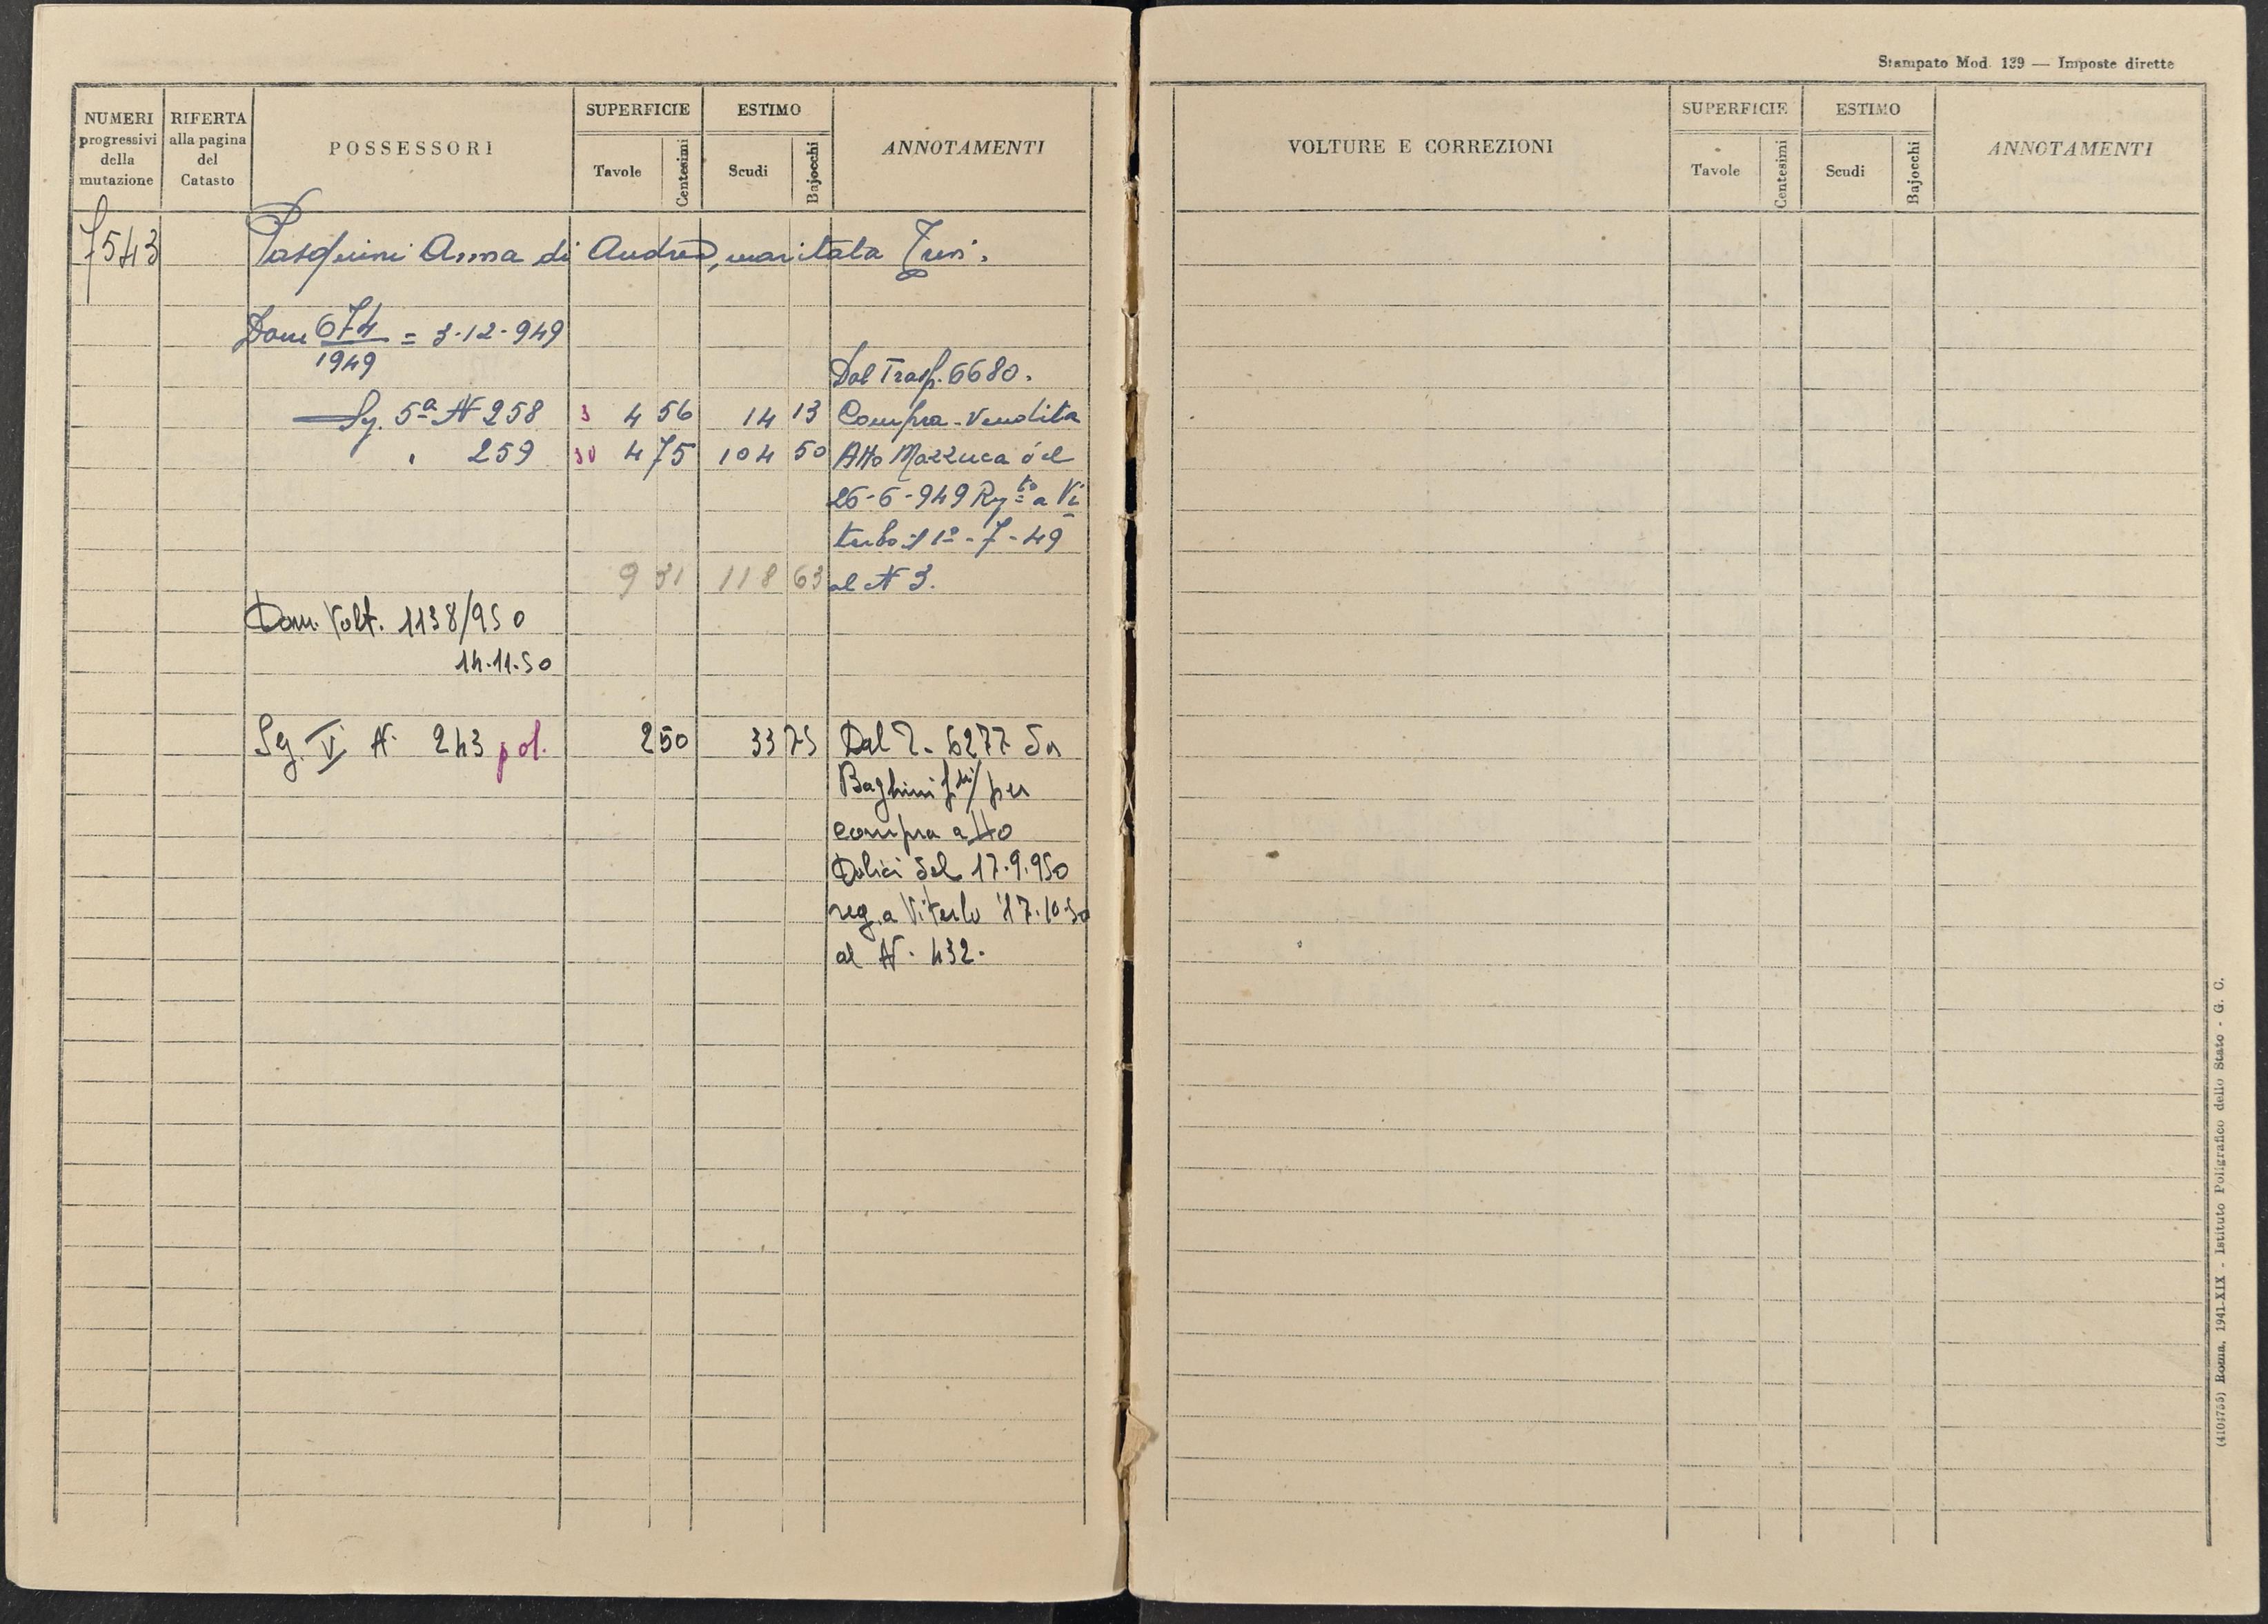 NUMERI progressivi della mutazione
RIFERTA alla pagina del Catasto
POSSESSORI
SUPERFICIE
Tavole
Centesimi
ESTIMO
Scudi
Bajocchi
ANNOTAMENTI
7543
Pasquini Anna di Andrea, maritata
Dom 674/1949 = 3-12-949
Dal Trasp. 6680.
Sez. 5ª N 258 3 4 56 14 13 Compra-Vendita
" 259 30 4 75 104 50 Atto Mazzuca del
26-6-949 Regto a Vi
terbo il 1º-7-49
9 31 118 63 al N 3.
Dom. Volt. 1138/950
14.11.50
Sez. V N. 243 pol. 2 50 33 75 Dal T. 6277 da
Baghini per
compra atto
Dolici del 17.9.950
reg. a Viterbo il 7.10.50
al N. 432.
Stampato Mod. 139 — Imposte dirette
VOLTURE E CORREZIONI
SUPERFICIE
Tavole
Centesimi
ESTIMO
Scudi
Bajocchi
ANNOTAMENTI
(4104755) Roma, 1941-XIX - Istituto Poligrafico dello Stato - G. C.